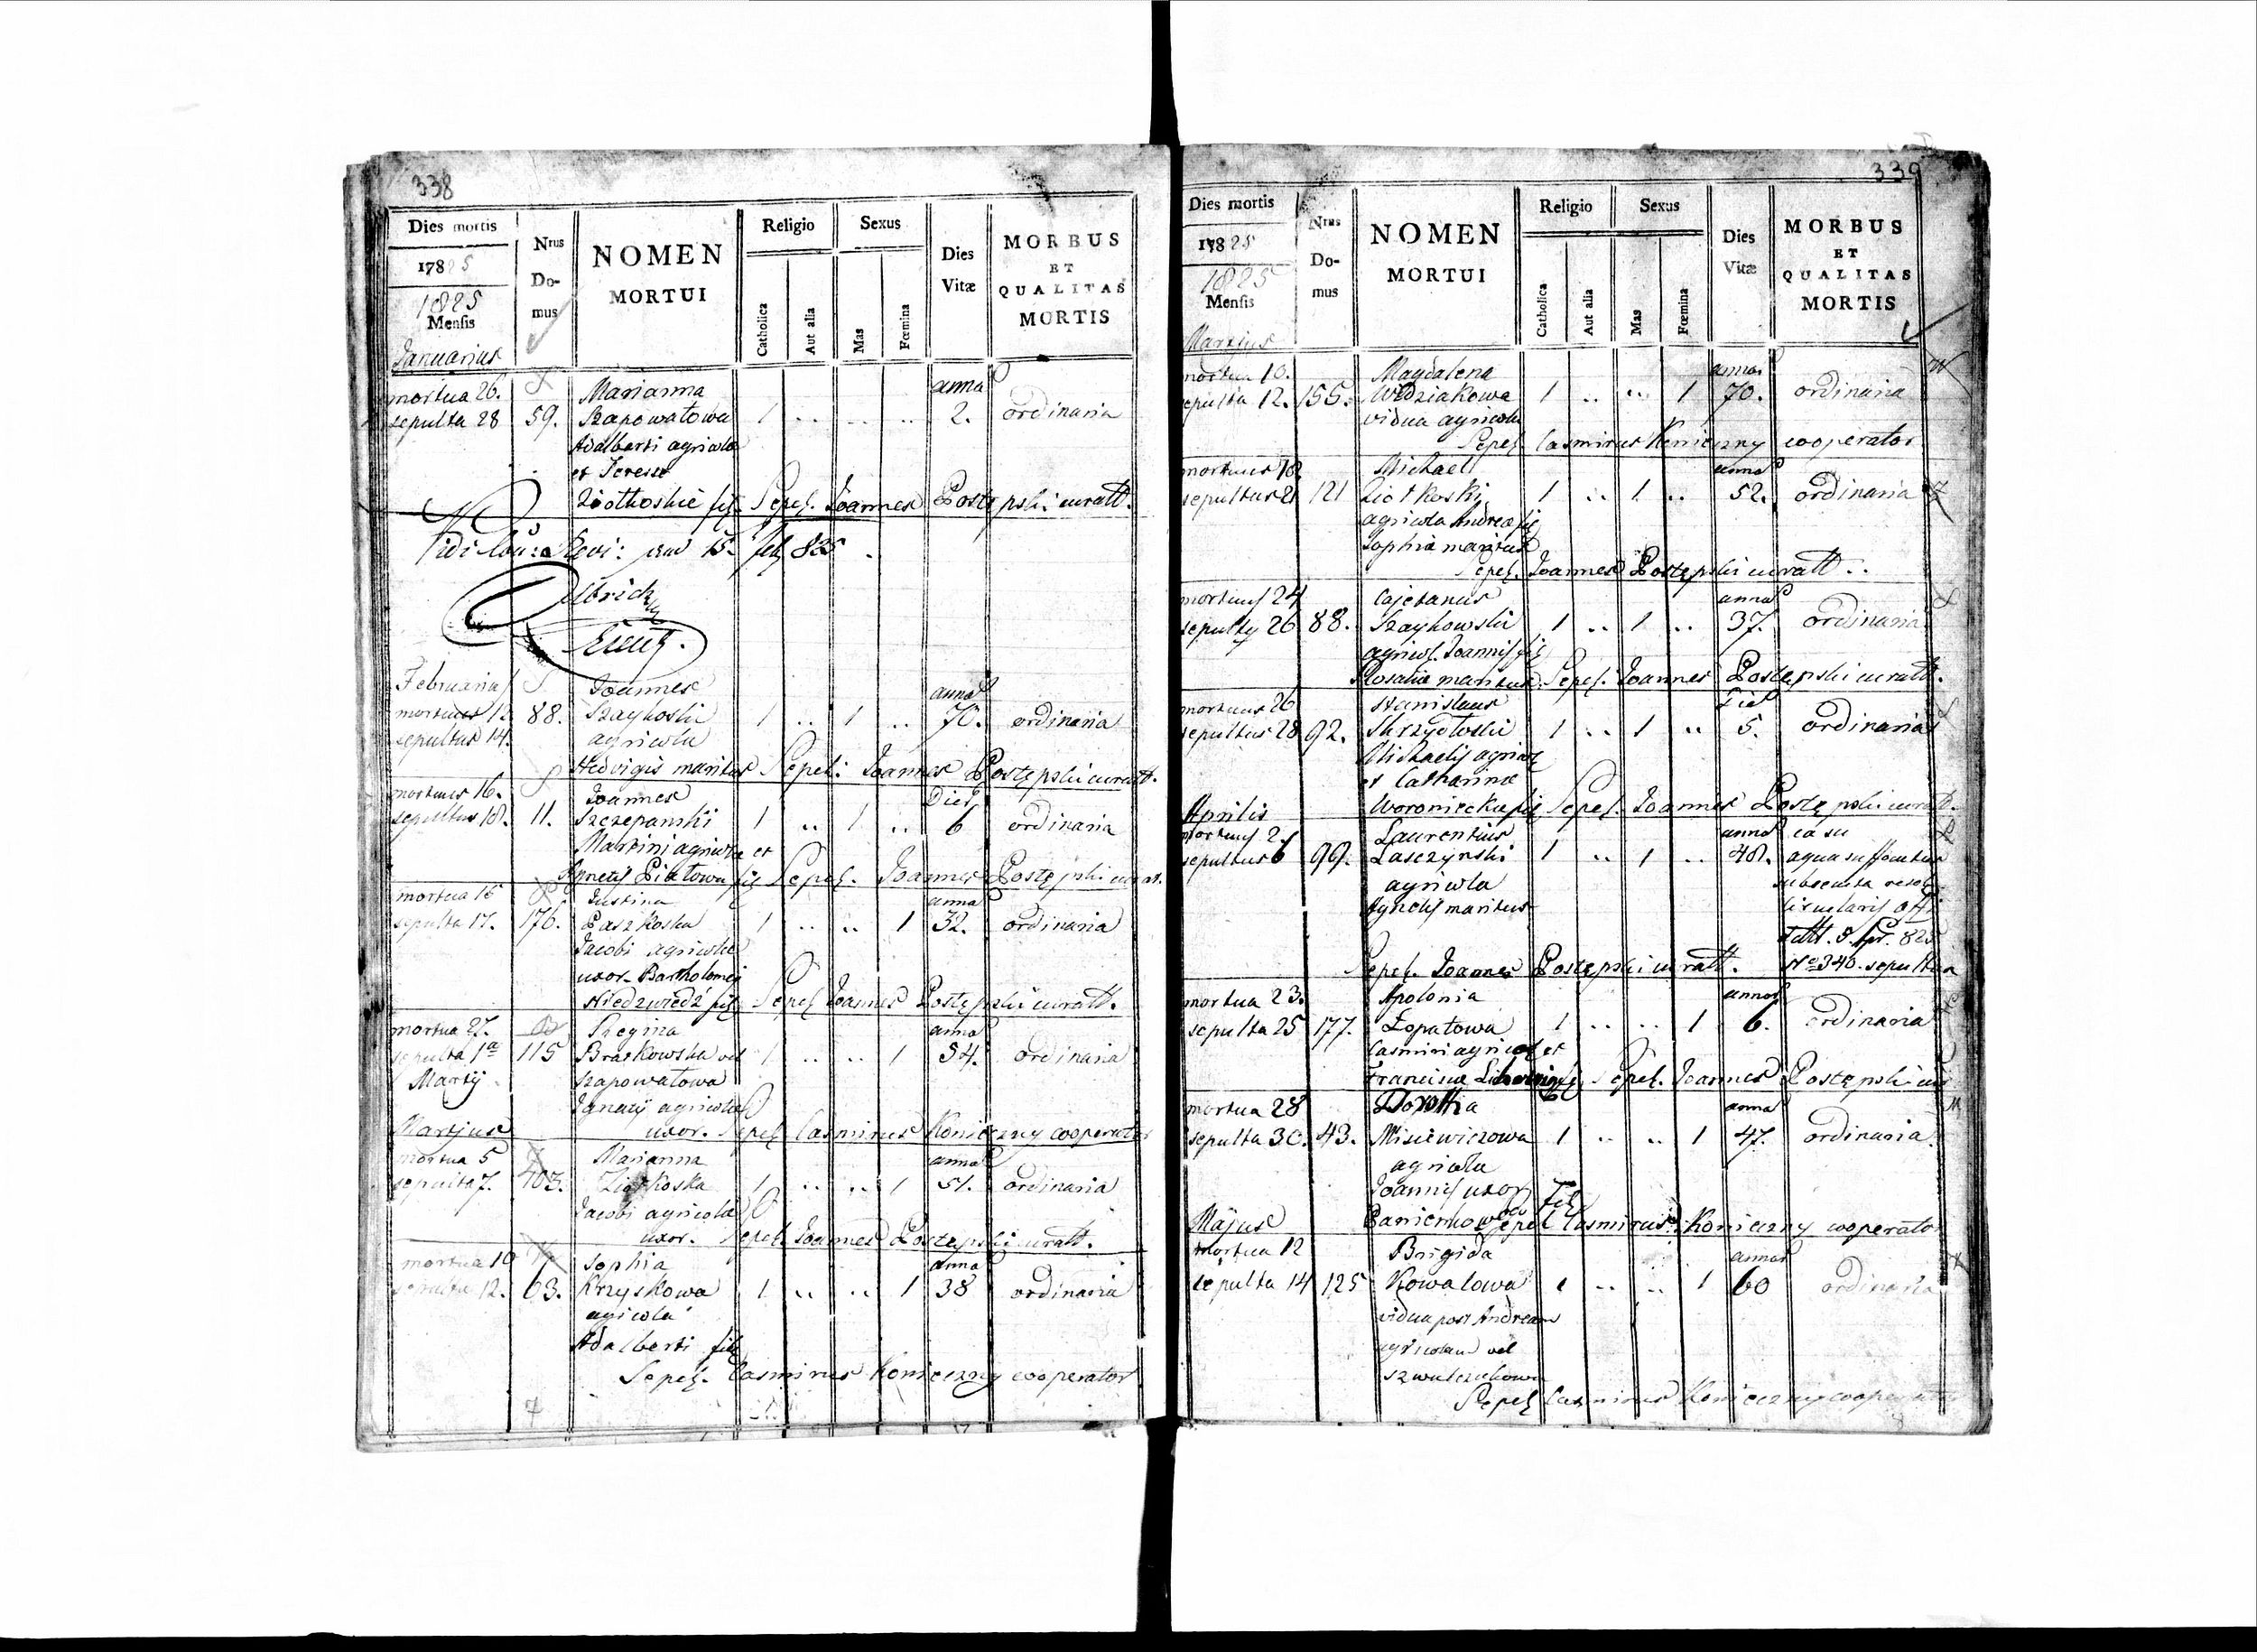 338
Dies mortis
1785
1825
Mensis
Januarius
Nrus
Do-
mus
NOMEN
MORTUI
Religio
Catholica
Aut alia
Sexus
Mas
Fœmina
Dies
Vitæ
MORBUS
ET
QUALITAS
MORTIS
mortua 26. Marianna anna
sepulta 28 59. Szapowałowa 1 .. .. .. 2. ordinaria
Adalberti agricola
et Teresa
Ziotkoskie fil. Sepel. Joannes Postępski curatt.
15. feb 825
Februarius Joannes anna
mortuus 12 88. Szaykoski 1 .. 1 .. 70. ordinaria
sepultus 14. agricola
Hedvigis maritus Sepel: Joannes Postępski curatt.
mortuus 16. Joannes Dies
sepultus 18. 11. Szczepanski 1 .. 1 .. 6 ordinaria
Martini agricolæ et
Agnetis Piatowa fil Sepel. Joannes Postępski curat.
mortua 15 Justina anna
sepulta 17. 176. Paszkoska 1 .. .. 1 32. ordinaria
Jacobi agricolæ
uxor. Bartholomej
Niedzwiedź fil. Sepel Joannes Postępski curatt.
mortua 27. Regina anna
sepulta 1a 115 Braskowska vel 1 .. .. 1 54. ordinaria
Martij Szapowałowa
Ignatij agricolæ
Martjus uxor. Sepel Casmirus Konieczny cooperator
mortua 5 Marianna anna
sepulta 7. 103. Ziotkoska 1 .. .. 1 51. ordinaria
Jacobi agricolæ
uxor. Sepel Joannes Postępski curatt.
mortua 10 Sophia anna
sepulta 12. 63. Krzyskowa 1 .. .. 1 38 ordinaria
agricola
Adalberti fil
Sepel. Casmirus Konieczny cooperator
339
Dies mortis
1785
1825
Mensis
Martjus
Nrus
Do-
mus
NOMEN
MORTUI
Religio
Catholica
Aut alia
Sexus
Mas
Fœmina
Dies
Vitæ
MORBUS
ET
QUALITAS
MORTIS
mortua 10. Magdalena anna
sepulta 12. 155. 1 .. .. 1 70. ordinaria
vidua agricola
Sepel Casmirus Konieczny cooperator
mortuus 18 Michael anna
sepultus 21 121 Ziotkoski 1 .. 1 .. 52. ordinaria
agricola Andrea fil
Sophia maritus
Sepel. Joannes Postępski curatt ..
mortuus 24 Cajetanus anna
sepultus 26 88. Szaykowski 1 .. 1 .. 37. ordinaria
agricol. Joannis fil
Rosalia maritus. Sepel. Joannes Postępski curatt.
mortuus 26 Stanislaus Dies
sepultus 28 92. 1 .. 1 .. 5. ordinaria
Michaelis agricolæ
et Catharina
Aprilis Woroniecka fil Sepel. Joannes Postępski curatt.
mortuus 2 Laurentius anna casu
sepultus 6 99. Łasczynski 1 .. 1 .. 48. aqua suffocatus
agricola
Agnetis maritus
Sepel. Joannes Postępski curatt. No 340. sepultus
mortua 23. Apolonia annos
sepulta 25 177. Łopatowa 1 .. .. 1 6. ordinaria
Casmiri agricolæ et
Francisca fil. Sepel. Joannes Postępski cur
mortua 28 Dorothia anna
sepulta 30. 43. Misiewiczowa 1 .. .. 1 47. ordinaria.
agricola
Joannis uxor
Majus fil Sepel Casmirus Konieczny cooperator
mortua 12 Brigida annos
sepulta 14 125 Kowalowa 1 .. .. 1 60 ordinaria
vidua post Andream
agricolam vel
Sepel Casmirus Konieczny cooperator